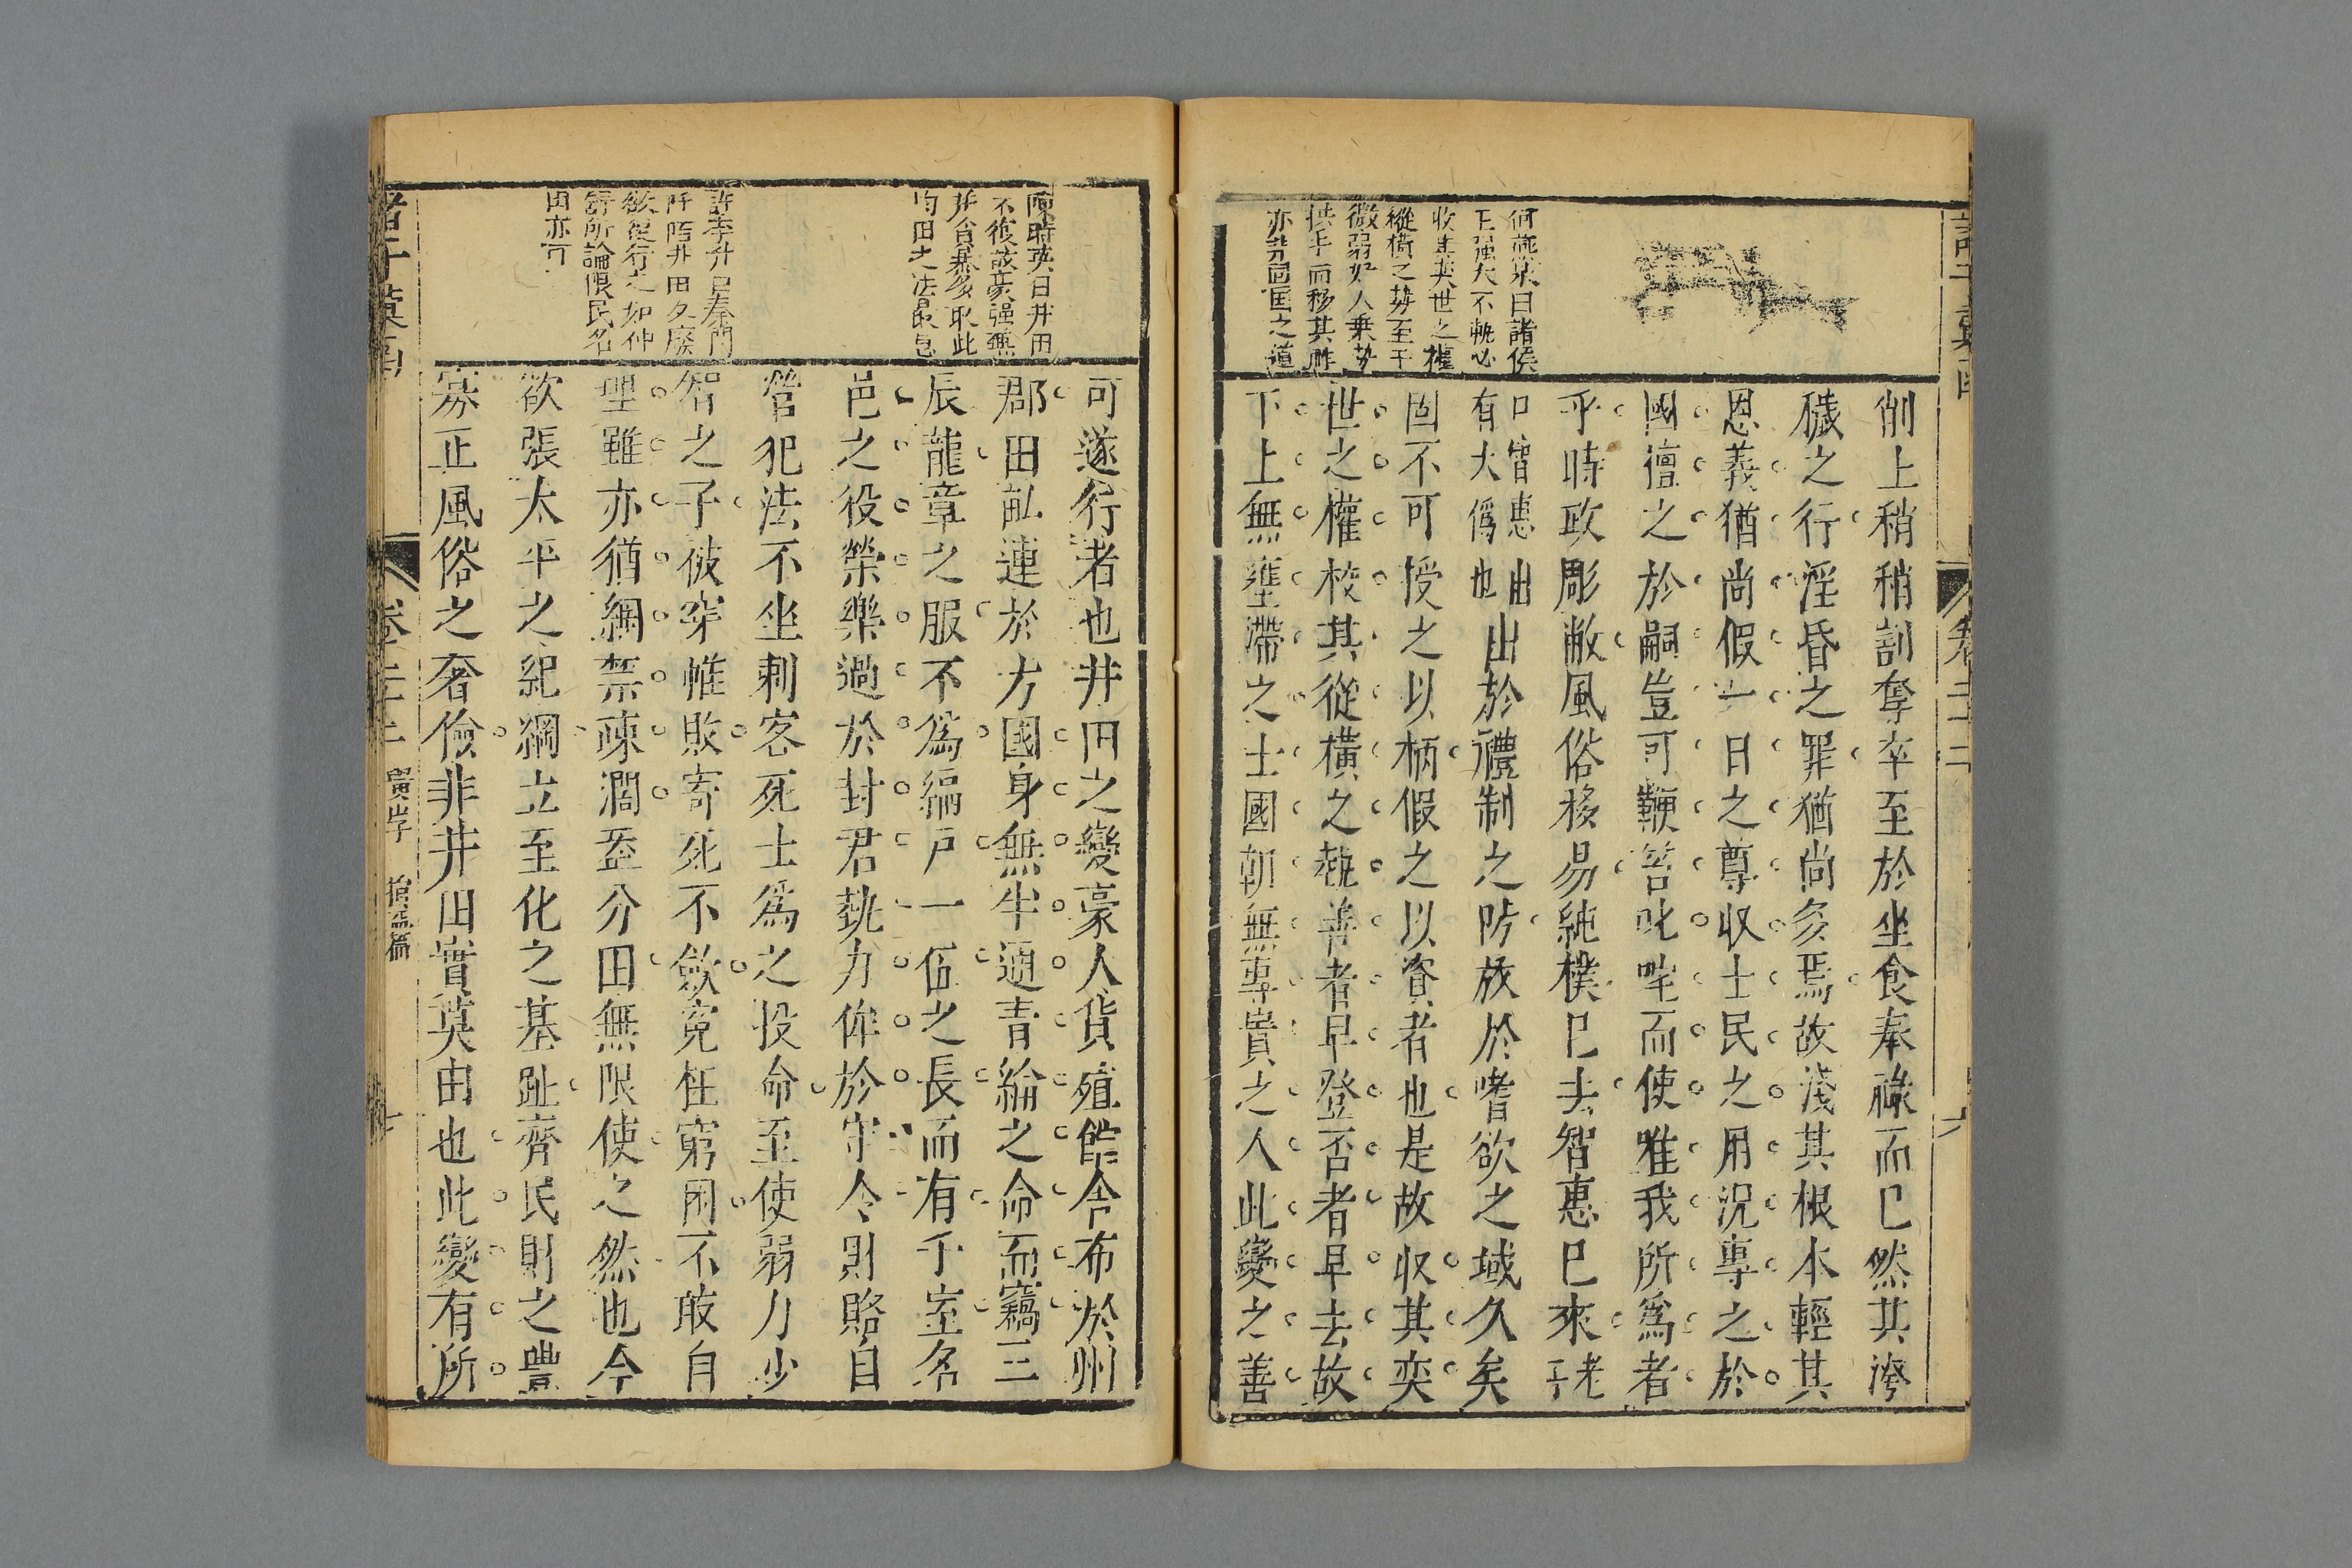 何燕泉曰諸侯
王强大不軌必
收其奕世之權
縱橫之勢至于
微弱如人乗勢
拱手而移其祚
亦豈
之道
削上稍稍割奪卒至於坐食奉祿而已然其洿
穢之行淫昏之罪猶尚多焉故淺其根本輕其
恩義猶尚假一日之尊收士民之用況專之於
國擅之於嗣豈可鞭笞叱咤而使唯我所爲者
乎時政彫敝風俗移易純樸已去智惠已來老子
曰智惠出
有大僞也
出於禮制之防放於嗜欲之域久矣
固不可授之以柄假之以資者也是故收其奕
世之權校其從橫之埶善者早登否者早去故
下土無壅滯之士國朝無專貴之人此變之善
陳時英曰井田
不復故豪强兼
并貪暴多取此
均田之法最急
許季升曰秦開
阡陌井田久廢
欲復行之如仲
舒所論限民名
田亦可
可遂行者也井田之變豪人貨殖館舍布於州
郡田畝連於方國身無半通青綸之命而竊三
辰龍章之服不爲編戶一伍之長而有千室名
邑之役榮樂過於封君埶力侔於守令財賂自
營犯法不坐刺客死士爲之投命至使弱力少
智之子被穿帷敗寄死不斂寃枉窮困不敢自
理雖亦猶網禁疎濶葢分田無限使之然也今
欲張太平之紀綱立至化之基趾齊民財之豐
寡正風俗之奢儉非井田實莫由也此變有所
諸子彙函
卷二十二